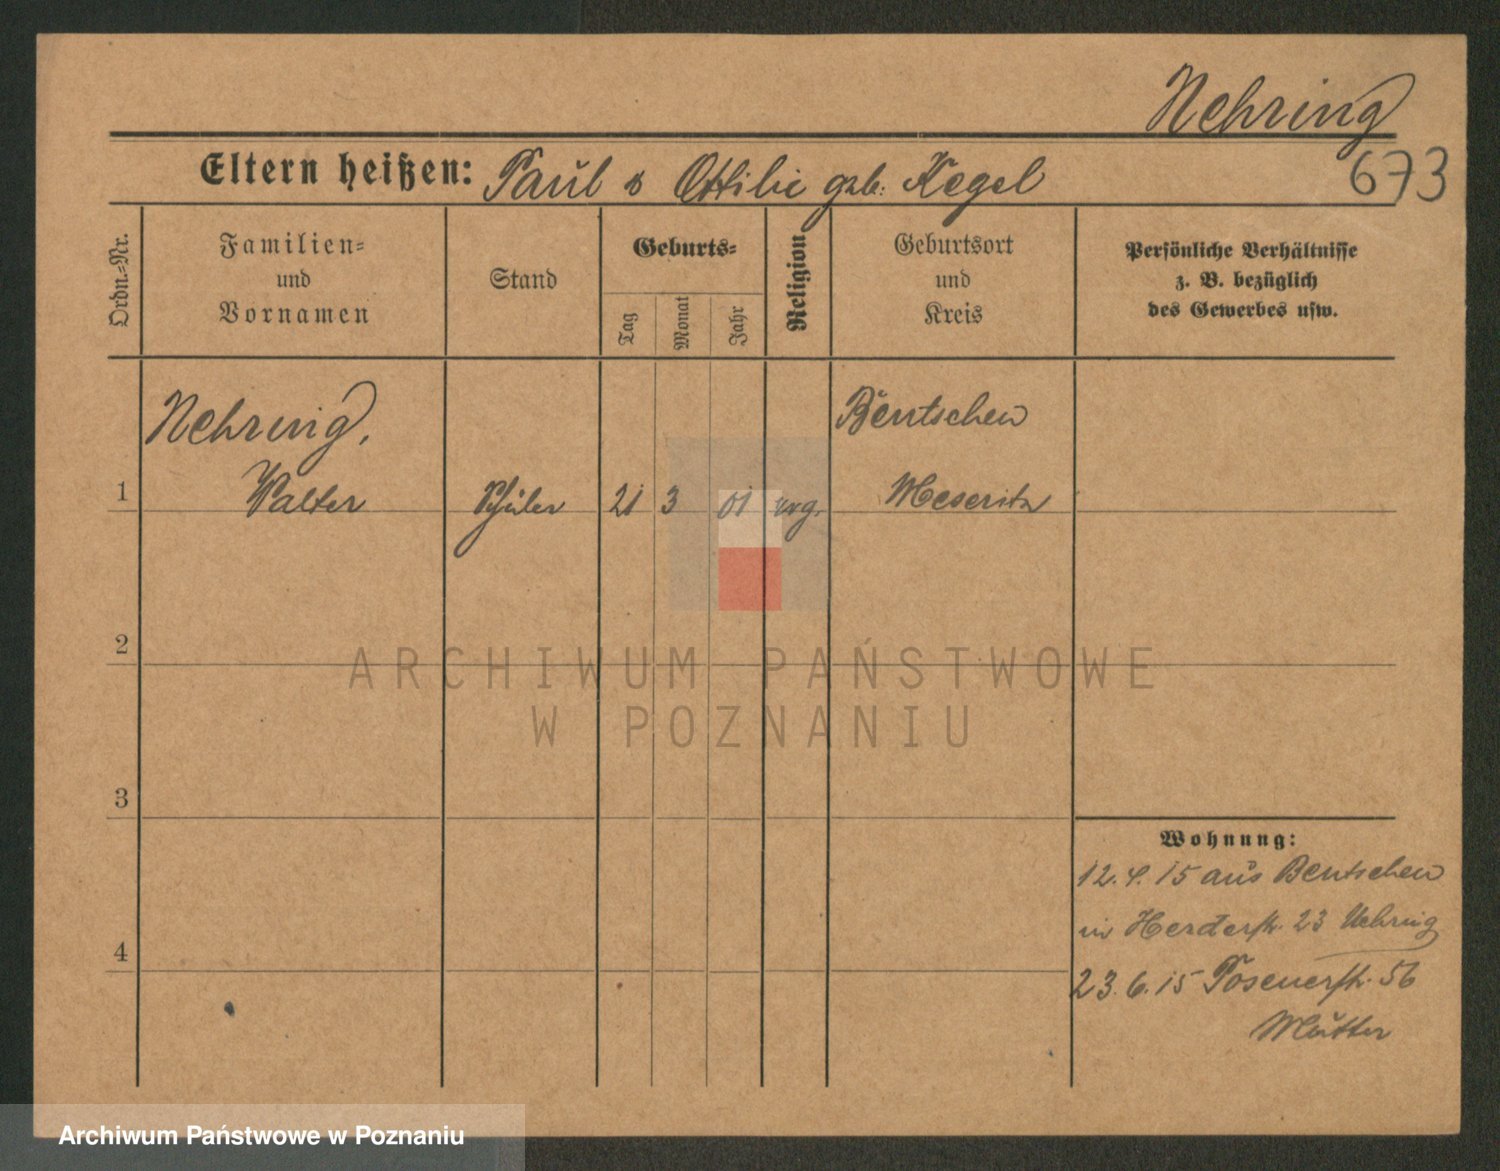 Nehring
673
Eltern heißen: Paul & Ottilie geb. Kegel
Ordn.=Nr.
Familien=
und
Vornamen
Stand
Geburts=
Tag
Monat
Jahr
Religion
Geburtsort
und
Kreis
Persönliche Verhältnisse
z. B. bezüglich
des Gewerbes usw.
Nehring,
Bentschen
1 Walter Schüler 21 3 01 evg. Meseritz
2
ARCHIWUM PAŃSTWOWE
W POZNANIU
3
Wohnung:
12.4.15 aus Bentschen
in Herderstr. 23 Nehring
4
23.6.15 Posenerstr. 56
Mutter
Archiwum Państwowe w Poznaniu